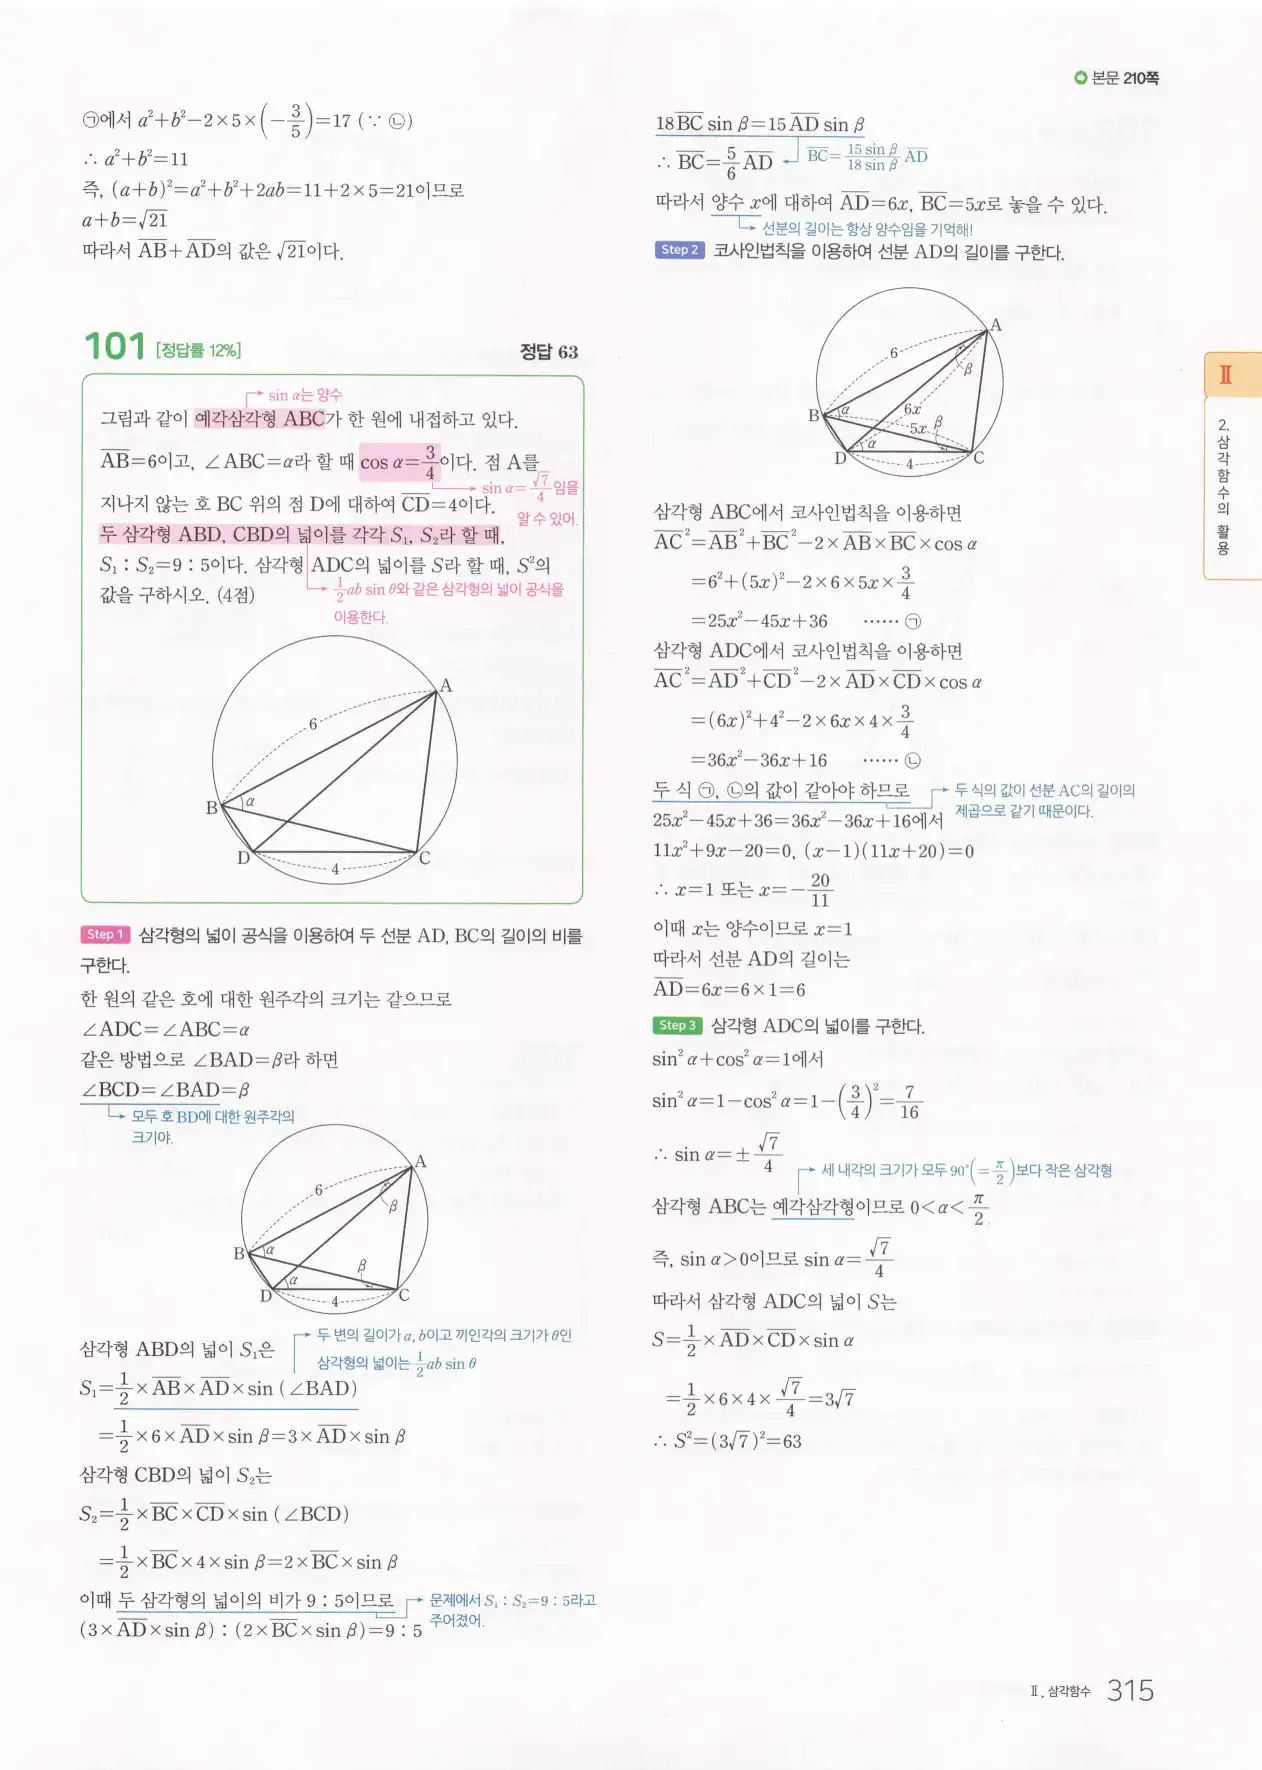 본문 210쪽
㉠에서 a²+b²−2×5×(−3/5)=17 (∵ ㉡)
∴ a²+b²=11
즉, (a+b)²=a²+b²+2ab=11+2×5=21이므로
a+b=√21
따라서 AB+AD의 값은 √21이다.
101 [정답률 12%] 정답 63
sin α는 양수
그림과 같이 예각삼각형 ABC가 한 원에 내접하고 있다.
AB=6이고, ∠ABC=α라 할 때 cos α=3/4이다. 점 A를
sin α=√7/4임을
지나지 않는 호 BC 위의 점 D에 대하여 CD=4이다.
알 수 있어.
두 삼각형 ABD, CBD의 넓이를 각각 S₁, S₂라 할 때,
S₁ : S₂=9 : 5이다. 삼각형 ADC의 넓이를 S라 할 때, S²의
값을 구하시오. (4점)
1/2 ab sin θ와 같은 삼각형의 넓이 공식을
이용한다.
A
6
B
α
D
C
4
Step 1 삼각형의 넓이 공식을 이용하여 두 선분 AD, BC의 길이의 비를
구한다.
한 원의 같은 호에 대한 원주각의 크기는 같으므로
∠ADC=∠ABC=α
같은 방법으로 ∠BAD=β라 하면
∠BCD=∠BAD=β
모두 호 BD에 대한 원주각의
크기야.
A
6
β
B
α
β
α
D
4
C
삼각형 ABD의 넓이 S₁은
두 변의 길이가 a, b이고 끼인각의 크기가 θ인
삼각형의 넓이는 1/2 ab sin θ
S₁=1/2×AB×AD×sin (∠BAD)
=1/2×6×AD×sin β=3×AD×sin β
삼각형 CBD의 넓이 S₂는
S₂=1/2×BC×CD×sin (∠BCD)
=1/2×BC×4×sin β=2×BC×sin β
이때 두 삼각형의 넓이의 비가 9 : 5이므로
문제에서 S₁ : S₂=9 : 5라고
주어졌어.
(3×AD×sin β) : (2×BC×sin β)=9 : 5
18BC sin β=15AD sin β
∴ BC=5/6 AD
BC=15 sin β/18 sin β AD
따라서 양수 x에 대하여 AD=6x, BC=5x로 놓을 수 있다.
선분의 길이는 항상 양수임을 기억해!
Step 2 코사인법칙을 이용하여 선분 AD의 길이를 구한다.
A
6
β
B
α
6x
5x
β
α
D
4
C
삼각형 ABC에서 코사인법칙을 이용하면
AC²=AB²+BC²−2×AB×BC×cos α
=6²+(5x)²−2×6×5x×3/4
=25x²−45x+36 …… ㉠
삼각형 ADC에서 코사인법칙을 이용하면
AC²=AD²+CD²−2×AD×CD×cos α
=(6x)²+4²−2×6x×4×3/4
=36x²−36x+16 …… ㉡
두 식 ㉠, ㉡의 값이 같아야 하므로
두 식의 값이 선분 AC의 길이의
제곱으로 같기 때문이다.
25x²−45x+36=36x²−36x+16에서
11x²+9x−20=0, (x−1)(11x+20)=0
∴ x=1 또는 x=−20/11
이때 x는 양수이므로 x=1
따라서 선분 AD의 길이는
AD=6x=6×1=6
Step 3 삼각형 ADC의 넓이를 구한다.
sin² α+cos² α=1에서
sin² α=1−cos² α=1−(3/4)²=7/16
∴ sin α=±√7/4
세 내각의 크기가 모두 90°(=π/2)보다 작은 삼각형
삼각형 ABC는 예각삼각형이므로 0<α<π/2.
즉, sin α>0이므로 sin α=√7/4
따라서 삼각형 ADC의 넓이 S는
S=1/2×AD×CD×sin α
=1/2×6×4×√7/4=3√7
∴ S²=(3√7)²=63
Ⅱ
2. 삼각함수의 활용
Ⅱ. 삼각함수 315